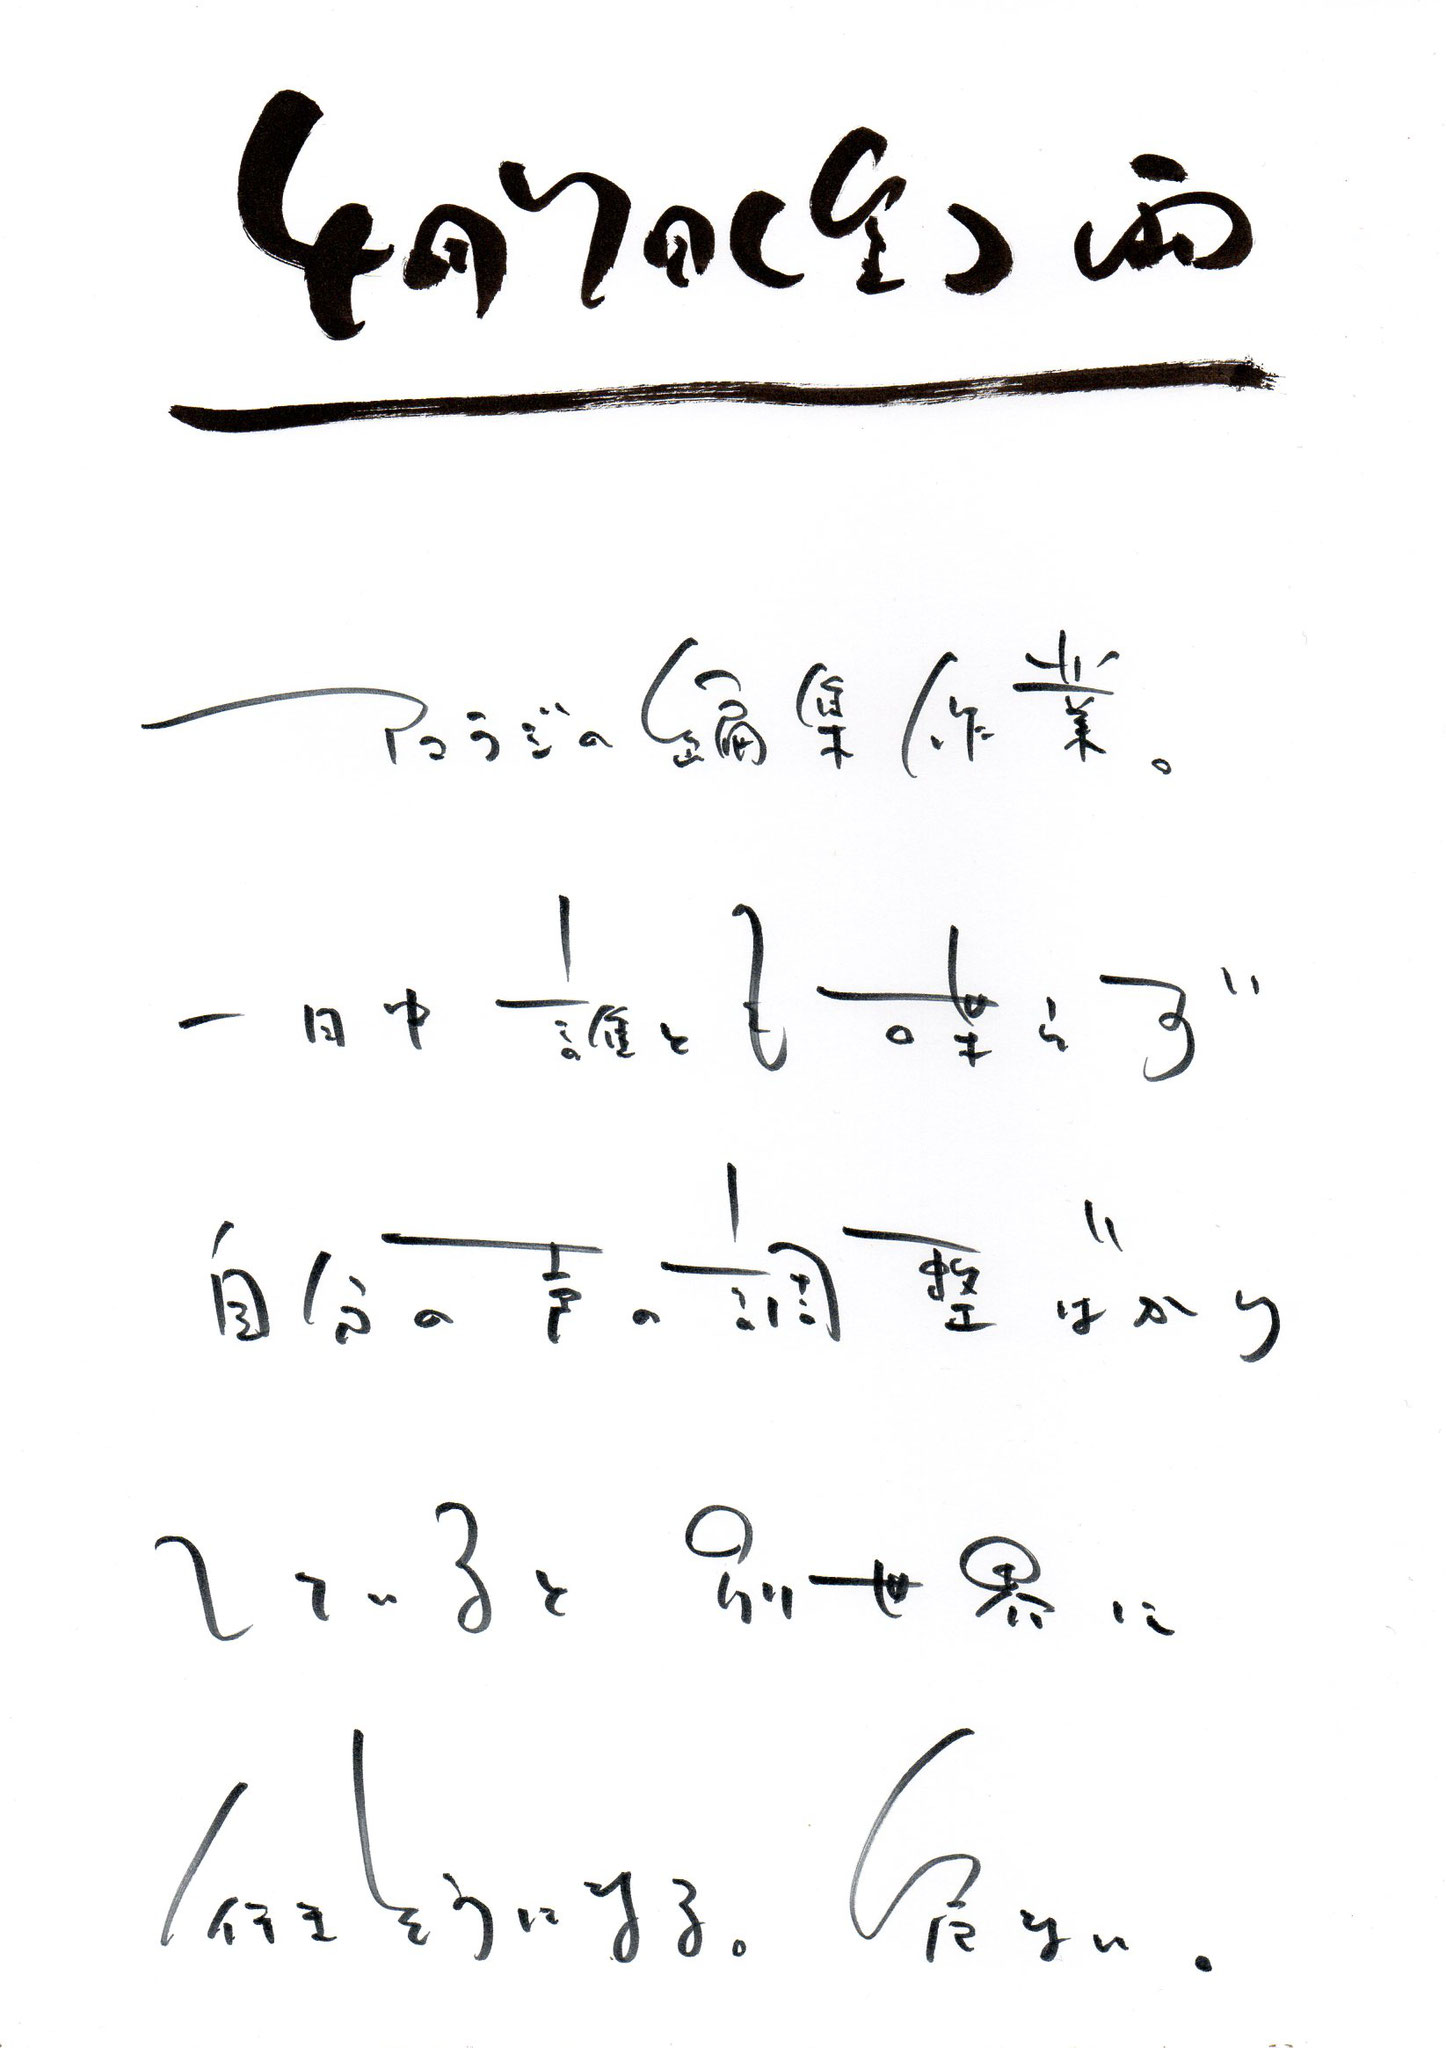 4月7日(金)雨
アコラジの編集作業。
一日中誰とも喋らず
自分の声の調整ばかり
していると別世界に
行きそうになる。危ない。